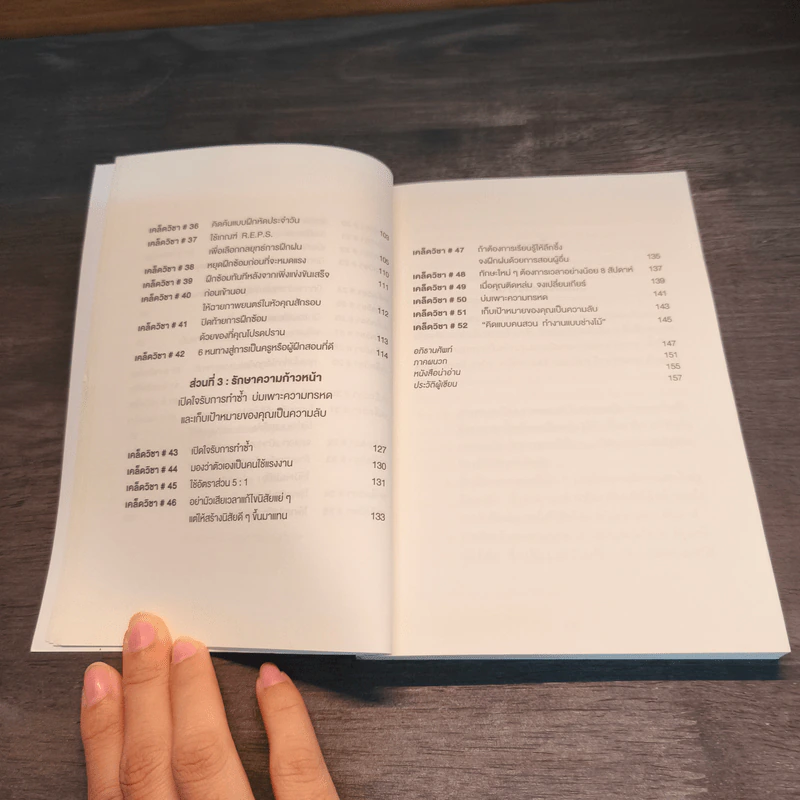 เคล็ดวิชา # 36 คิดค้นแบบฝึกหัดประจำวัน
เคล็ดวิชา # 37 ใช้เกณฑ์ R.E.P.S. 103
เพื่อเลือกกลยุทธ์การฝึกฝน
เคล็ดวิชา # 38 หยุดฝึกซ้อมก่อนที่จะหมดแรง 105
เคล็ดวิชา # 39 ฝึกซ้อมทันทีหลังจากเพิ่งแข่งขันเสร็จ 110
เคล็ดวิชา # 40 ก่อนเข้านอน 111
ให้ฉายภาพยนตร์ในหัวคุณสักรอบ
เคล็ดวิชา # 41 ปิดท้ายการฝึกซ้อม 112
ด้วยของที่คุณโปรดปราน 113
เคล็ดวิชา # 42 6 หนทางสู่การเป็นครูหรือผู้ฝึกสอนที่ดี 114
ส่วนที่ 3 : รักษาความก้าวหน้า
เปิดใจรับการทำซ้ำ บ่มเพาะความทรหด
และเก็บเป้าหมายของคุณเป็นความลับ
เคล็ดวิชา # 43 เปิดใจรับการทำซ้ำ 127
เคล็ดวิชา # 44 มองว่าตัวเองเป็นคนใช้แรงงาน 130
เคล็ดวิชา # 45 ใช้อัตราส่วน 5 : 1 131
เคล็ดวิชา # 46 อย่ามัวเสียเวลาแก้ไขนิสัยแย่ ๆ
แต่ให้สร้างนิสัยดี ๆ ขึ้นมาแทน 133
เคล็ดวิชา # 47 ถ้าต้องการเรียนรู้ให้ลึกซึ้ง
จงฝึกฝนด้วยการสอนผู้อื่น 135
เคล็ดวิชา # 48 ทักษะใหม่ ๆ ต้องการเวลาอย่างน้อย 8 สัปดาห์ 137
เคล็ดวิชา # 49 เมื่อคุณติดหล่ม จงเปลี่ยนเกียร์ 139
เคล็ดวิชา # 50 บ่มเพาะความทรหด 141
เคล็ดวิชา # 51 เก็บเป้าหมายของคุณเป็นความลับ 143
เคล็ดวิชา # 52 "คิดแบบคนสวน ทำงานแบบช่างไม้" 145
อภิธานศัพท์ 147
ภาคผนวก 151
หนังสือน่าอ่าน 155
ประวัติผู้เขียน 157